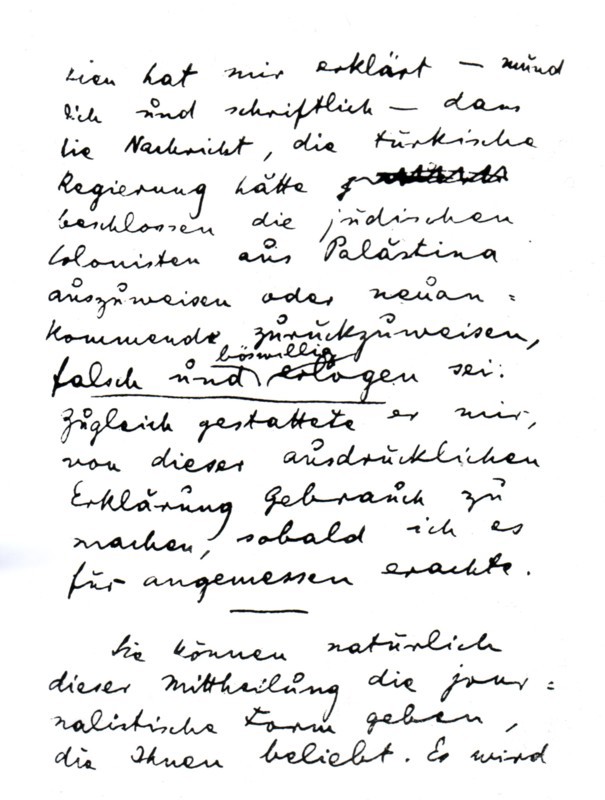 hat mir erklärt — münd
lich und schriftlich — dass
die Nachricht, die türkische
Regierung hätte
beschlossen die jüdischen
Colonisten aus Palästina
auszuweisen oder neuan=
kommende zurückzuweisen,
böswillig
falsch und erlogen sei.
Zugleich gestattete er mir,
von dieser ausdrücklichen
Erklärung Gebrauch zu
machen, sobald ich es
für angemessen erachte.
Sie können natürlich
dieser Mittheilung die jour=
nalistische Form geben,
die Ihnen beliebt. Es wird